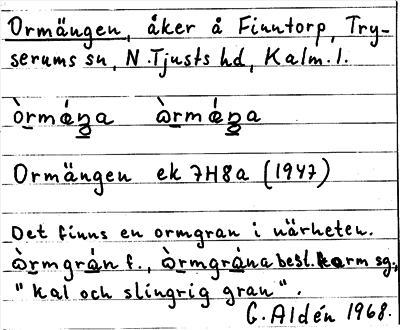 Ormängen, åker å Finntorp, Try-
serums sn, N. Tjusts hd, Kalm. l.
òrmáŋa ὼrmáŋa
Ormängen ek 7H8a (1947)
Det finns en ormgran i närheten.
ὼrmgrán f., ὼrmgrána best. form sg.,
"kal och slingrig gran".
C. Aldén 1968.